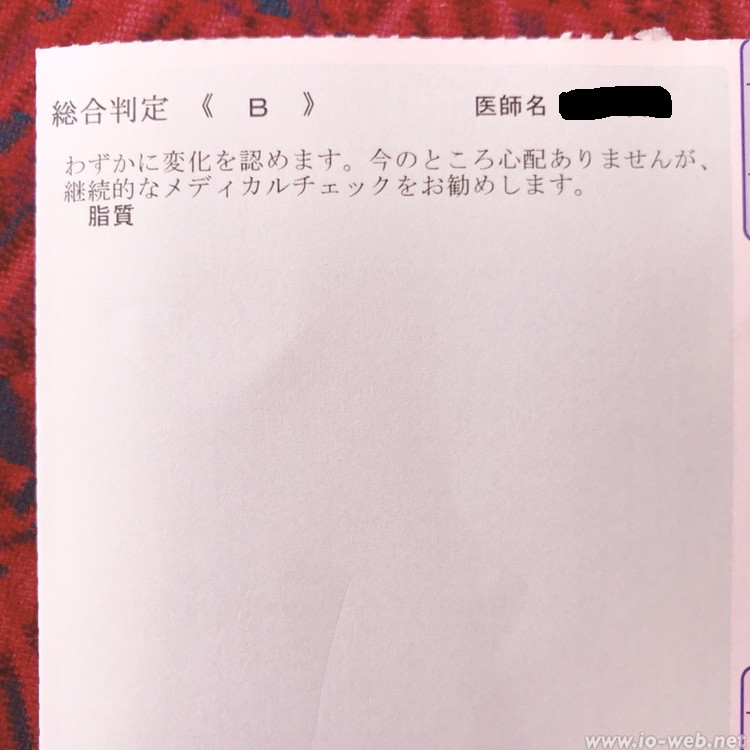 総合判定 《 B 》 医師名
わずかに変化を認めます。今のところ心配ありませんが、
継続的なメディカルチェックをお勧めします。
脂質
www.io-web.net